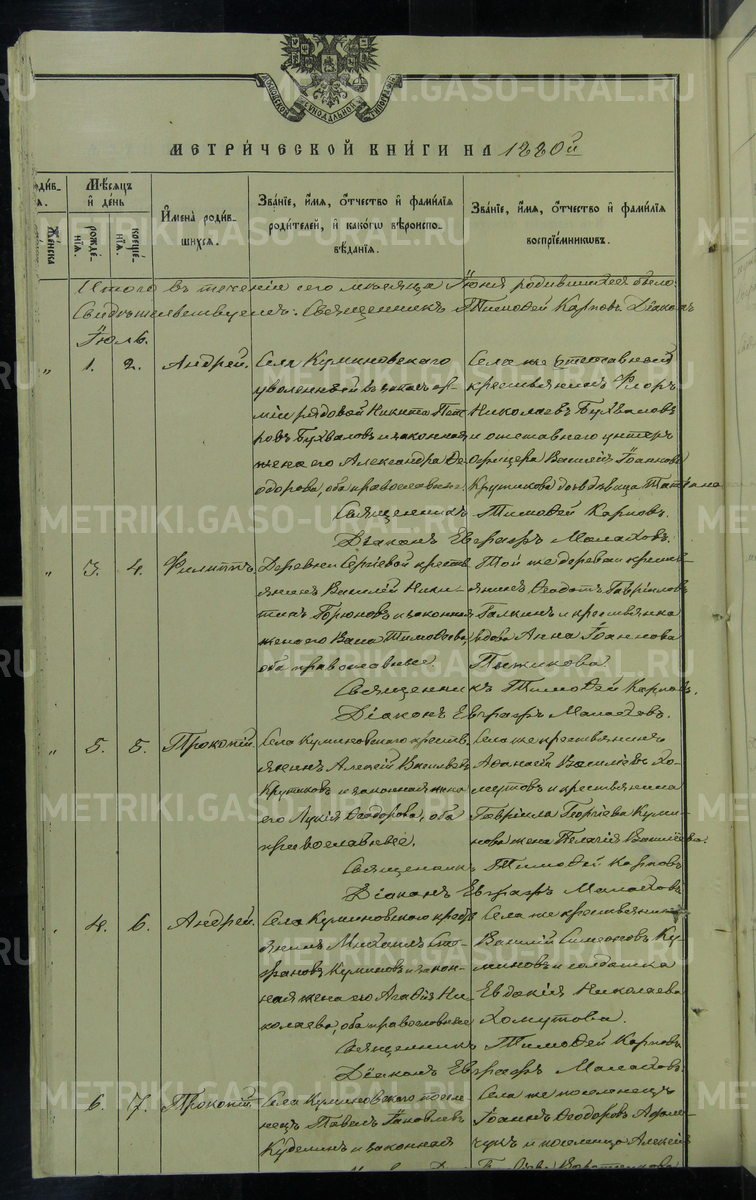 МОСКОВСКОЙ СѴНОДАЛЬНОЙ ТИПОГРАФІИ
МЕТРИ́ЧЕСКОЙ КНИ́ГИ НА 1880й
Мѣсяцъ и день
рождéнія.
крещéнія.
Женска
Имена родившихся.
Званіе, имя, отчество и фамилія родителей, и какого вѣроисповѣданія.
Званіе, имя, отчество и фамилія воспріемниковъ.
Итого въ теченіи сего мѣсяца Іюня родившихся было:
Свидѣтельствуемъ: Священникъ Тимофей Карповъ Діаконъ
Іюль.
„ 1. 2. Андрей.
Села Куминовскаго
уволенный въ запасъ ар-
міи рядовой Никита Пет-
ровъ Бухваловъ и законная
жена его Александра Ѳе-
одорова, оба православные.
Села же отставной
крестьянинъ Флоръ
Николаевъ Бухваловъ
и отставнаго унтеръ
офицера Василія Іоаннова
Крутикова дочь дѣвица Татіана
Священникъ Тимофей Карповъ.
Діаконъ Евграфъ Малаховъ.
„ 3. 4. Филиппъ.
Деревни Сергѣевой кресть-
янинъ Василій Ники-
тинъ и законная
жена его Тимофеева,
оба православные
Той же деревни кресть-
янинъ Ѳеодотъ Гавріиловъ
Галкинъ и крестьянка
вдова Анна Іоаннова
Пыжикова.
Священникъ Тимофей Карповъ.
Діаконъ Евграфъ Малаховъ.
„ 5. 5. Прокопій.
Села Куминовскаго кресть-
янинъ Алексій Васильевъ
Крутиковъ и законная жена
его Лукія Ѳеодорова, оба
православные.
Села же крестьянинъ
Афанасій Василіевъ Хо-
мутовъ и крестьянина
Гавріила Георгіева Куми-
нова жена Пелагія Василіева.
Священникъ Тимофей Карповъ
Діаконъ Евграфъ Малаховъ
„ 4. 6. Андрей.
Села Куминовскаго кресть-
янинъ Михаилъ Сте-
фановъ Куминовъ и закон-
ная жена его Агафія Ни-
колаева, оба православные
Села же крестьянинъ
Василій Симеоновъ Ку-
миновъ и солдатка
Евдокія Николаева
Хомутова.
Священникъ Тимофей Карповъ
Діаконъ Евграфъ Малаховъ.
6. 7. Прокопій.
Села Куминовскаго поселе-
нецъ Павелъ Іаковлевъ
Куделинъ и законная
Села же поселенецъ
Іоаннъ Ѳеодоровъ
и поселенца Алексія
METRIKI.GASO-URAL.RU
METRIKI.GASO-URAL.RU
METRIKI.GASO-URAL.RU
METRIKI.GASO-URAL.RU
METRIKI.GASO-URAL.RU
METRIKI.GASO-URAL.RU
METRIKI.GASO-URAL.RU
METRIKI.GASO-URAL.RU